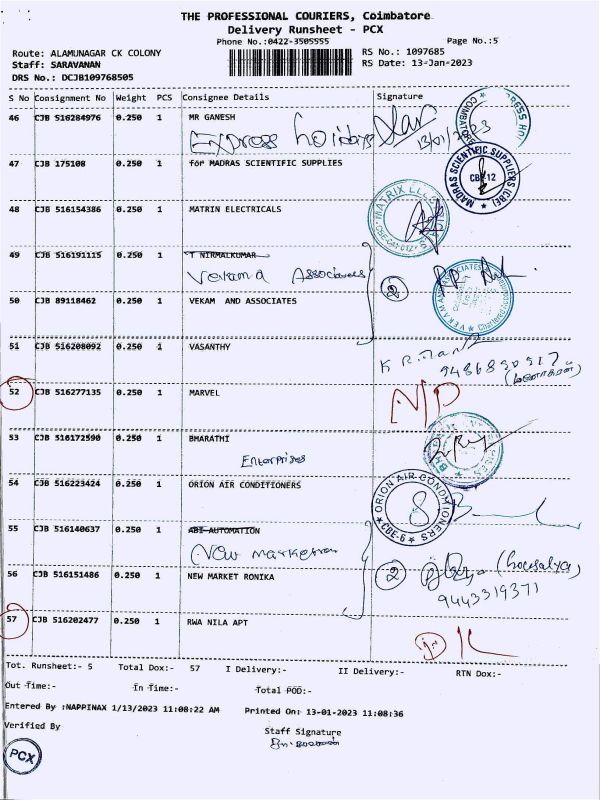 THE PROFESSIONAL COURIERS, Coimbatore
Delivery Runsheet - PCX
Phone No.:0422-3505555 Page No.:5
Route: ALAMUNAGAR CK COLONY RS No.: 1097685
Staff: SARAVANAN RS Date: 13-Jan-2023
DRS No.: DCJB109768505
S No Consignment No Weight PCS Consignee Details Signature
46 CJB 516284976 0.250 1 MR GANESH
Express holidays 13/01/2023
47 CJB 175108 0.250 1 for MADRAS SCIENTIFIC SUPPLIES
MADRAS SCIENTIFIC SUPPLIERS (CBE)
CBE-12
48 CJB 516154386 0.250 1 MATRIN ELECTRICALS
49 CJB 516191115 0.250 1 T NIRMALKUMAR
Vekam a Associates 2
50 CJB 89118462 0.250 1 VEKAM AND ASSOCIATES
51 CJB 516208092 0.250 1 VASANTHY
(மனோகரன்)
52 CJB 516277135 0.250 1 MARVEL N/D
53 CJB 516172590 0.250 1 BHARATHI
Enterprises
54 CJB 516223424 0.250 1 ORION AIR CONDITIONERS
ORION AIR CONDITIONERS
CBE-6
55 CJB 516140637 0.250 1 ABI AUTOMATION
56 CJB 516151486 0.250 1 NEW MARKET RONIKA 2 (kousalya)
9443319371
57 CJB 516202477 0.250 1 RWA NILA APT
Tot. Runsheet:- 5 Total Dox:- 57 I Delivery:- II Delivery:- RTN Dox:-
Out Time:- In Time:- Total POD:-
Entered By :NAPPINAX 1/13/2023 11:08:22 AM Printed On: 13-01-2023 11:08:36
Verified By Staff Signature
PCX